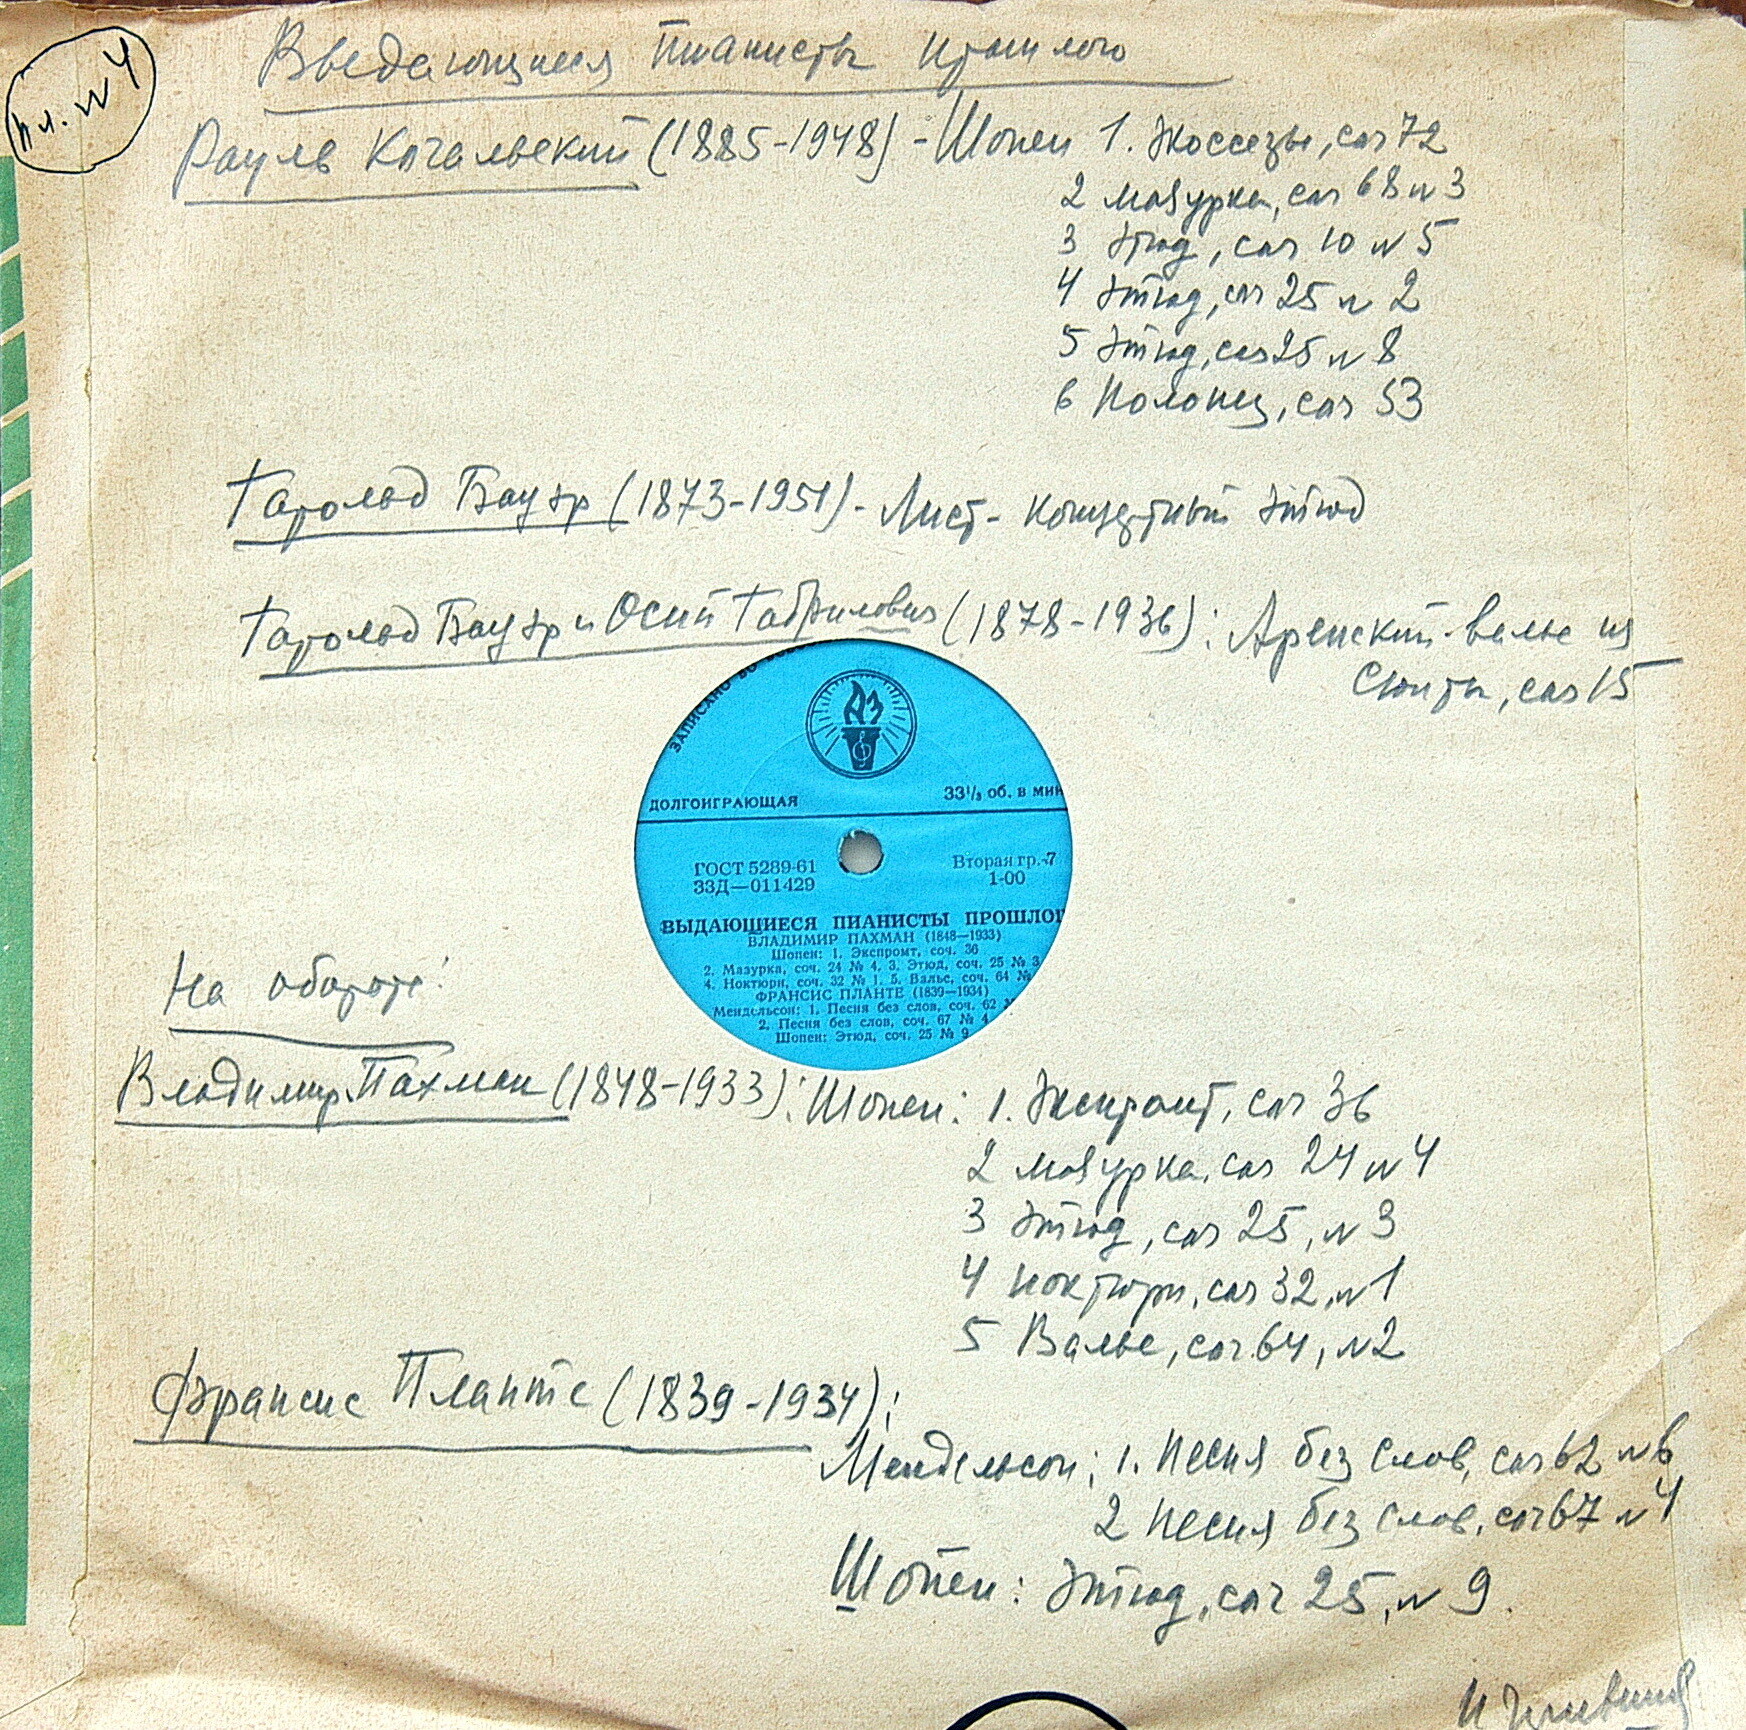 пл. №4
Выдающиеся пианисты прошлого
Рауль Кочальский (1885-1948) - Шопен 1. Экоссезы, соч 72
2 Мазурка, соч 68 №3
3 Этюд, соч 10 №5
4 Этюд, соч 25 № 2
5 Этюд, соч 25 № 8
6 Полонез, соч 53
Гарольд Бауэр (1873-1951) - Лист - концертный этюд
Гарольд Бауэр и Осип Габрилович (1878-1936): Аренский - вальс из
Сюиты, соч 15
ЗАПИСАНО ВО
ДОЛГОИГРАЮЩАЯ 33⅓ об. в мин
ГОСТ 5289-61 Вторая гр.-7
33Д—011429 1-00
ВЫДАЮЩИЕСЯ ПИАНИСТЫ ПРОШЛОГ
ВЛАДИМИР ПАХМАН (1848—1933)
Шопен: 1. Экспромт, соч. 36
2. Мазурка, соч. 24 № 4. 3. Этюд, соч. 25 № 3
4. Ноктюрн, соч. 32 № 1. 5. Вальс, соч. 64 №
ФРАНСИС ПЛАНТЕ (1839—1934)
Мендельсон: 1. Песня без слов, соч. 62 №
2. Песня без слов, соч. 67 № 4
Шопен: Этюд, соч. 25 № 9
На обороте:
Владимир Пахман (1848-1933): Шопен: 1. Экспромт, соч 36
2 Мазурка, соч 24 №4
3 Этюд, соч 25, №3
4 Ноктюрн, соч 32, №1
5 Вальс, соч 64, №2
Франсис Планте (1839-1934):
Мендельсон: 1. Песня без слов, соч 62 №6
2 Песня без слов, соч 67 №4
Шопен: Этюд, соч 25, №9.